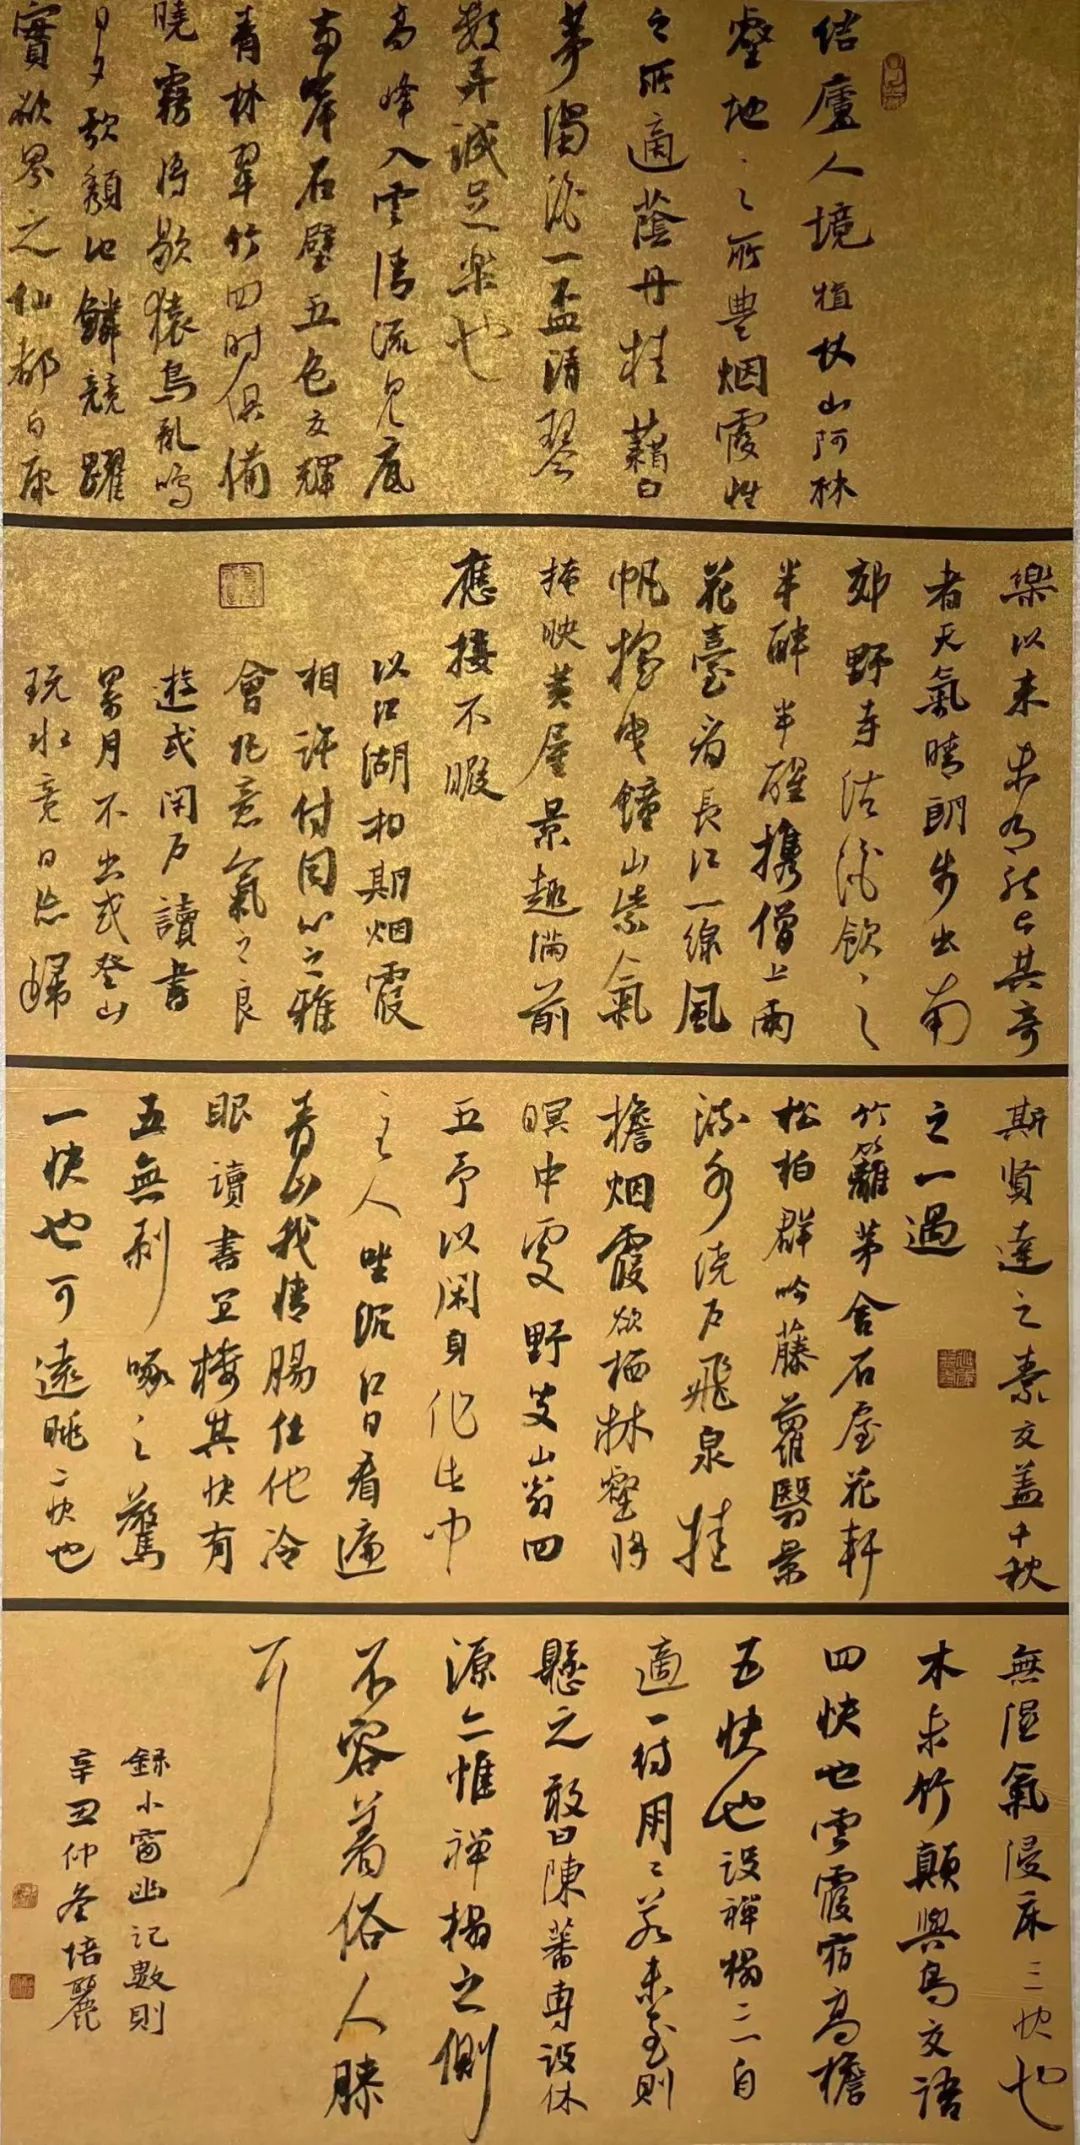 结廬人境植杖山阿林
壑地之所豊烟霞性
之所適蔭丹桂藉白
茅濁酒一盃清琴
数弄誠足樂也
高峰入雲清流見底
両岸石壁五色交輝
青林翠竹四时俱備
曉霧将歇猿鳥乱鳴
日夕欲頽池鱗競躍
實欲界之仙都自康
樂以来未有能与其奇
者天氣晴朗步出南
郊野寺沽酒飲之
半醉半醒攜僧上雨
花臺看長江一線風
帆摇曳鐘山紫氣
掩映黄屋景趣满前
應接不暇
以江湖相期烟霞
相许付同心之雅
會托意氣之良
遊或闭户讀書
累月不出或登山
玩水竟日忘歸
斯賢達之素交盖千秋
之一遇
竹籬茅舍石屋花軒
松柏群吟藤蘿翳景
流水绕户飛泉挂
檐烟霞欲栖林壑将
暝中处野叟山翁四
五予以闲身作此中
主人坐沉红日看遍
青山我情腸任他冷
眼讀書
五無剥啄之驚
一快也可遠眺二快也
無湿氣浸床三快也
木末竹顛與鳥交语
四快也雲霞宿高檐
五快也设禪榻二一自
適一待用ミ若未至则
懸之敢曰陳蕃專设休
源亡惟禅榻之側
不容着俗人膝
耳
録小窗幽记數則
辛丑仲冬培麗